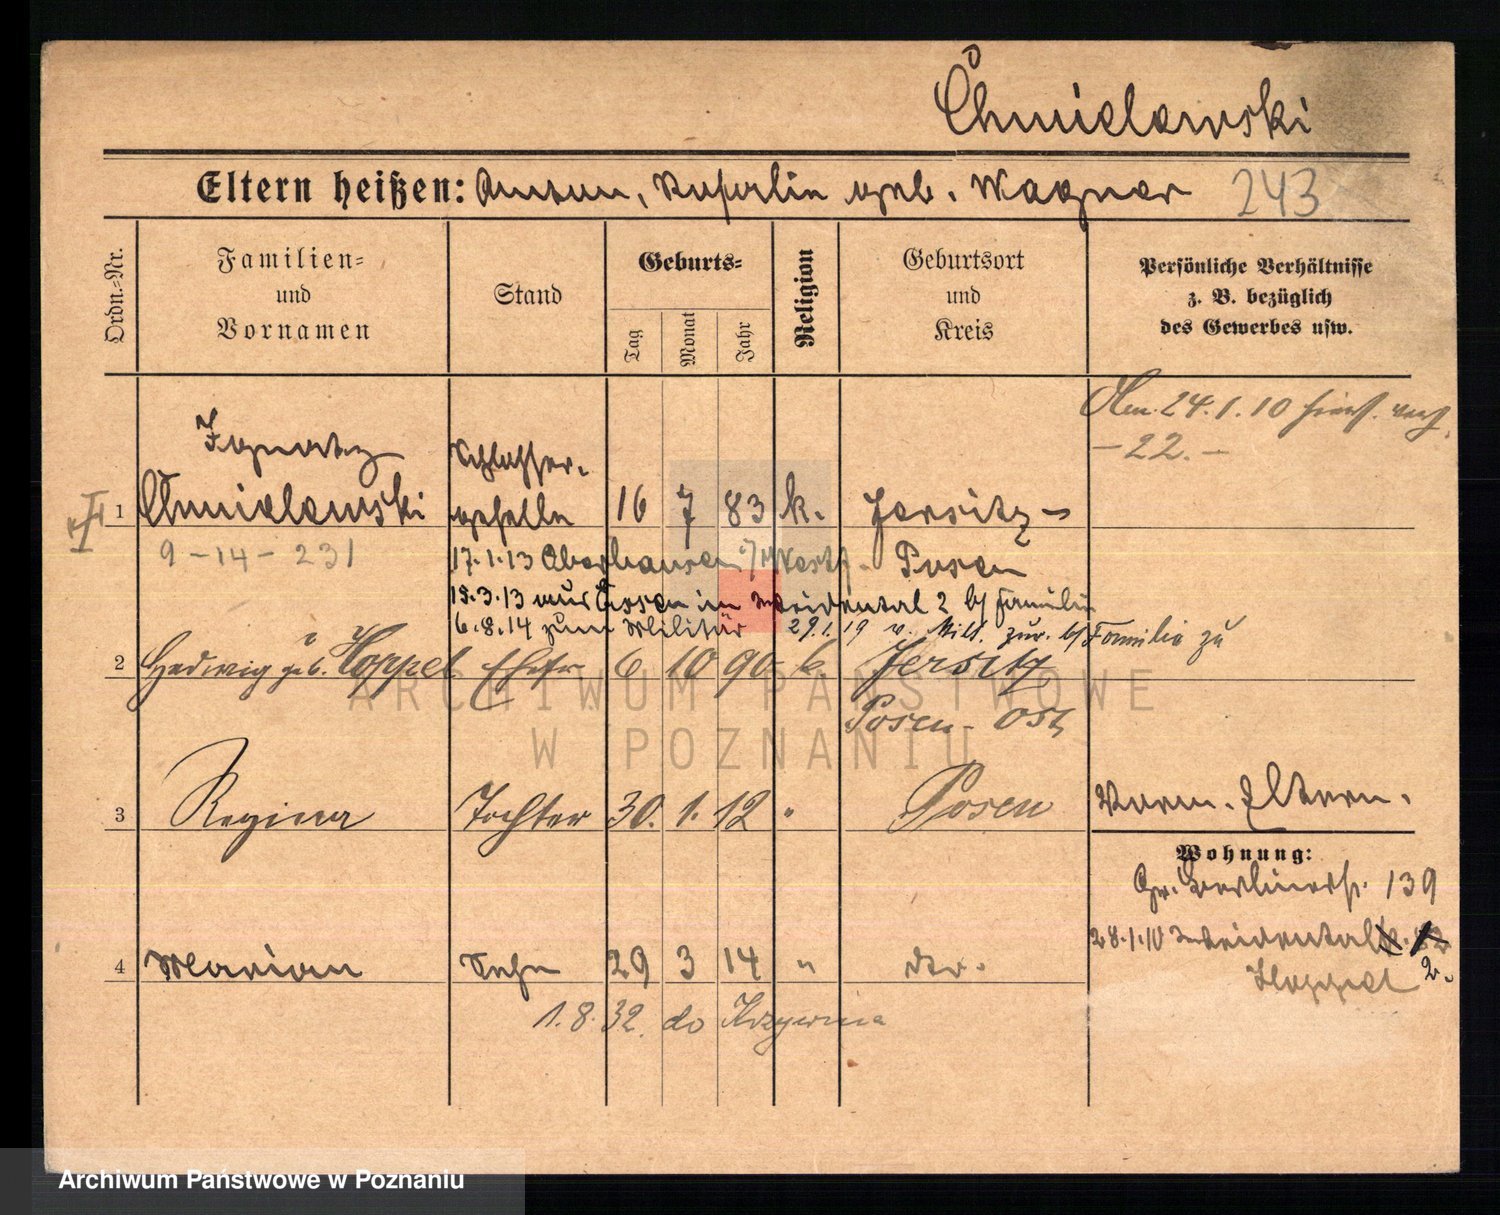 Chmielewski
Eltern heißen: Anton, Rosalie geb. Wagner 243
Ordn.-Nr.
Familien-
und
Vornamen
Stand
Geburts-
Tag
Monat
Jahr
Religion
Geburtsort
und
Kreis
Persönliche Verhältnisse
z. B. bezüglich
des Gewerbes usw.
24.1.10
-22.-
Ignatz Schlosser-
1 Chmielewski geselle 16 7 83 k. Jersitz-
9-14-231 17.1.13 Oberhausen i/Westf. Posen
18.3.13 aus Essen im 2 b/ Familie
6.8.14 zum Militär 29.1.19 v. Milt. zur. b/ Familie zu
2 Hedwig geb. Hoppel Ehefr. 6 10 90 k. Jersitz
Posen-Ost
3 Regina Tochter 30. 1. 12 " Posen
Eltern.
Wohnung:
Gr. Berlinerstr. 139
4 Marian Sohn 29 3 14 "
28.1.10
Hoppel 2.
1.8.32. do Krzywina
ARCHIWUM PAŃSTWOWE
W POZNANIU
Archiwum Państwowe w Poznaniu